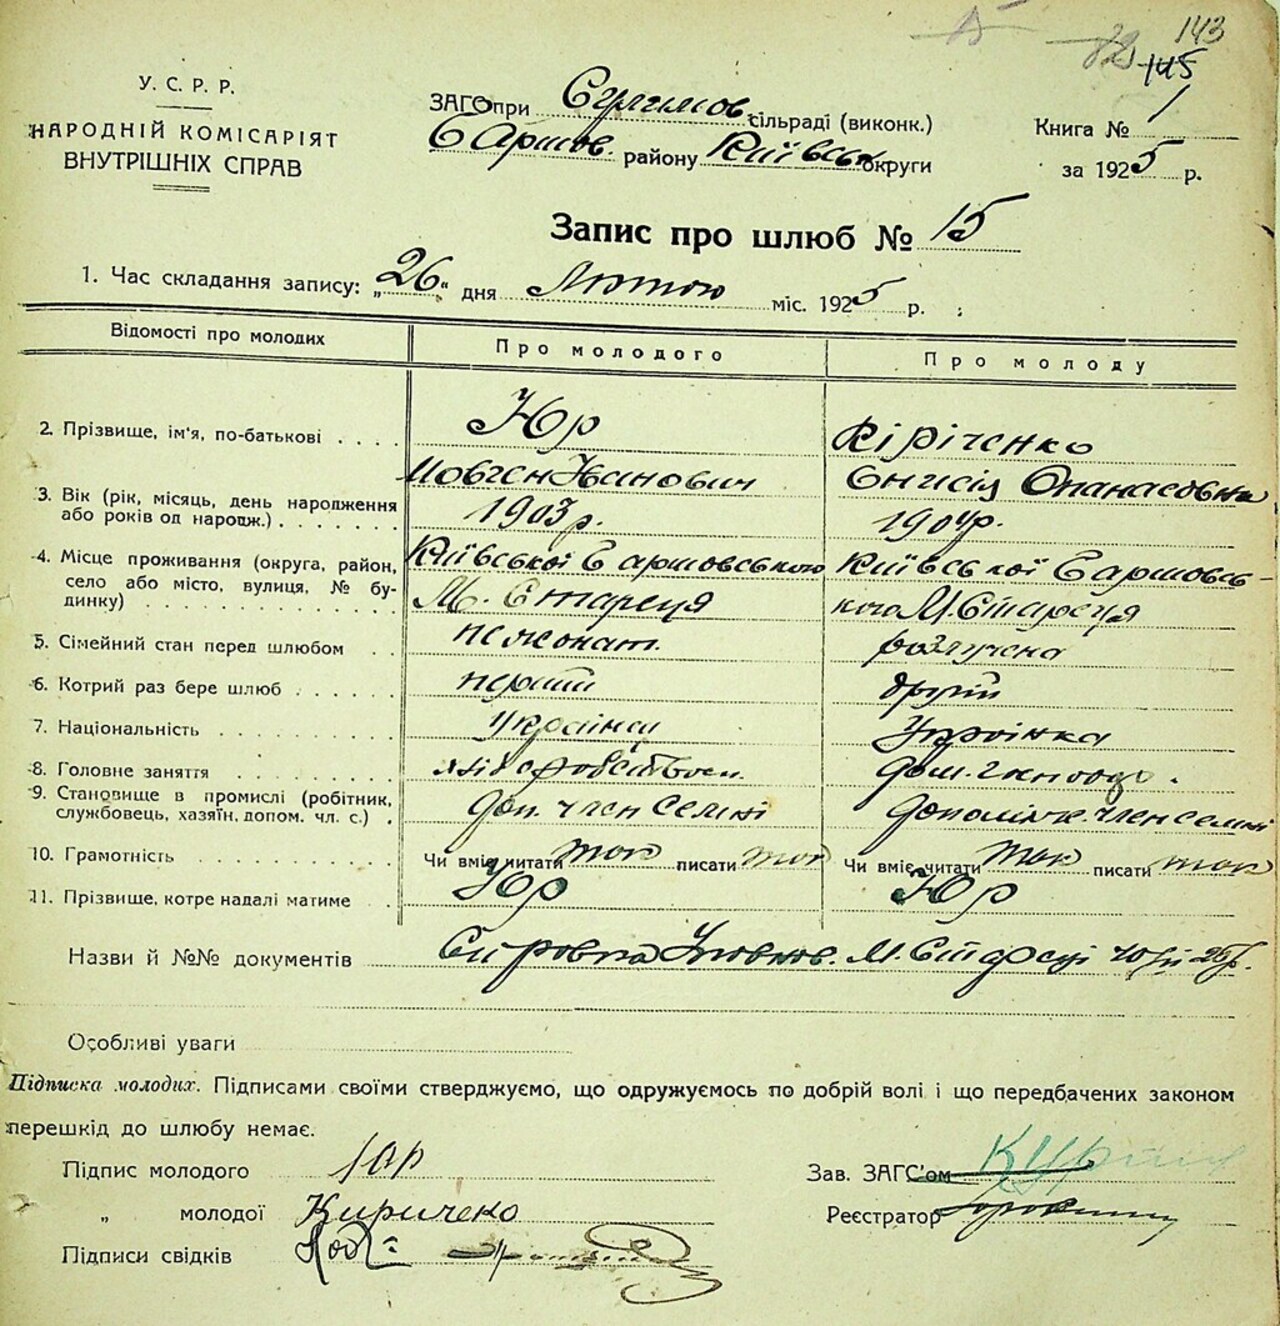 143
145
У. С. Р. Р.
НАРОДНІЙ КОМІСАРІЯТ
ВНУТРІШНІХ СПРАВ
ЗАГС при Сулимов. сільраді (виконк.)
району Київськ округи
Книга № 1
за 1925 р.
Запис про шлюб № 15
1. Час складання запису: „26“ дня Лютого міс. 1925 р.
Відомості про молодих
Про молодого
Про молоду
2. Прізвище, ім'я, по-батькові
Юр
Кіріченко
Мовчен Іванович
Онисія Опанасовна
3. Вік (рік, місяць, день народження
або років од народж.)
1903 р.
1904 р.
4. Місце проживання (округа, район,
село або місто, вулиця, № бу-
динку)
Київської Баршовського
М. Стареця
Київської Баршовсь-
кого М. Стареця
5. Сімейний стан перед шлюбом
нежонат.
розлучена
6. Котрий раз бере шлюб
перший
другій
7. Національність
Українец
Українка
8. Головне заняття
дом.
9. Становище в промислі (робітник,
службовець, хазяїн, допом. чл. с.)
доп. член семні
член семні
10. Грамотність
Чи вміє читати так писати так
Чи вміє читати так писати так
11. Прізвище, котре надалі матиме
Юр
Юр
Назви й №№ документів
М. Старсці
Особливі уваги
Підписка молодих. Підписами своїми стверджуємо, що одружуємось по добрій волі і що передбачених законом
перешкід до шлюбу немає.
Підпис молодого Юр
„ молодої Киричеко
Підписи свідків
Зав. ЗАГС'ом
Реєстратор